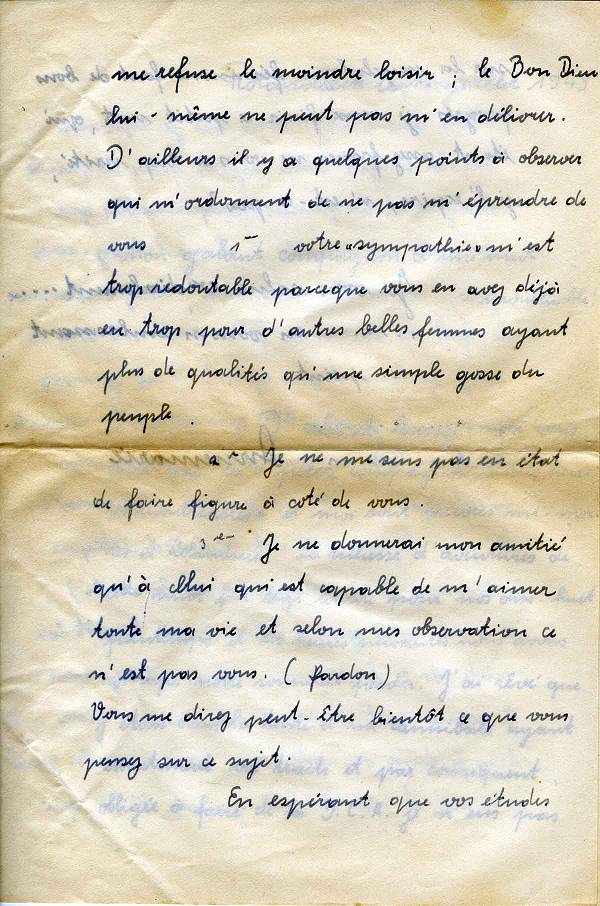 me refuse le moindre loisir ; le Bon Dieu
lui-même ne peut pas m'en délivrer.
D'ailleurs il y a quelques points à observer
qui m'ordonnent de ne pas m'éprendre de
vous 1° votre «sympathie» m'est
trop redoutable parceque vous en avez déjà
eu trop pour d'autres belles femmes ayant
plus de qualités qu'une simple gosse du
peuple.
2° Je ne me sens pas en état
de faire figure à coté de vous.
3e- Je ne donnerai mon amitié
qu'à cellui qui est capable de m'aimer
toute ma vie et selon mes observation ce
n'est pas vous. (Pardon)
Vous me direz peut-être bientôt ce que vous
pensez sur ce sujet.
En espérant que vos études